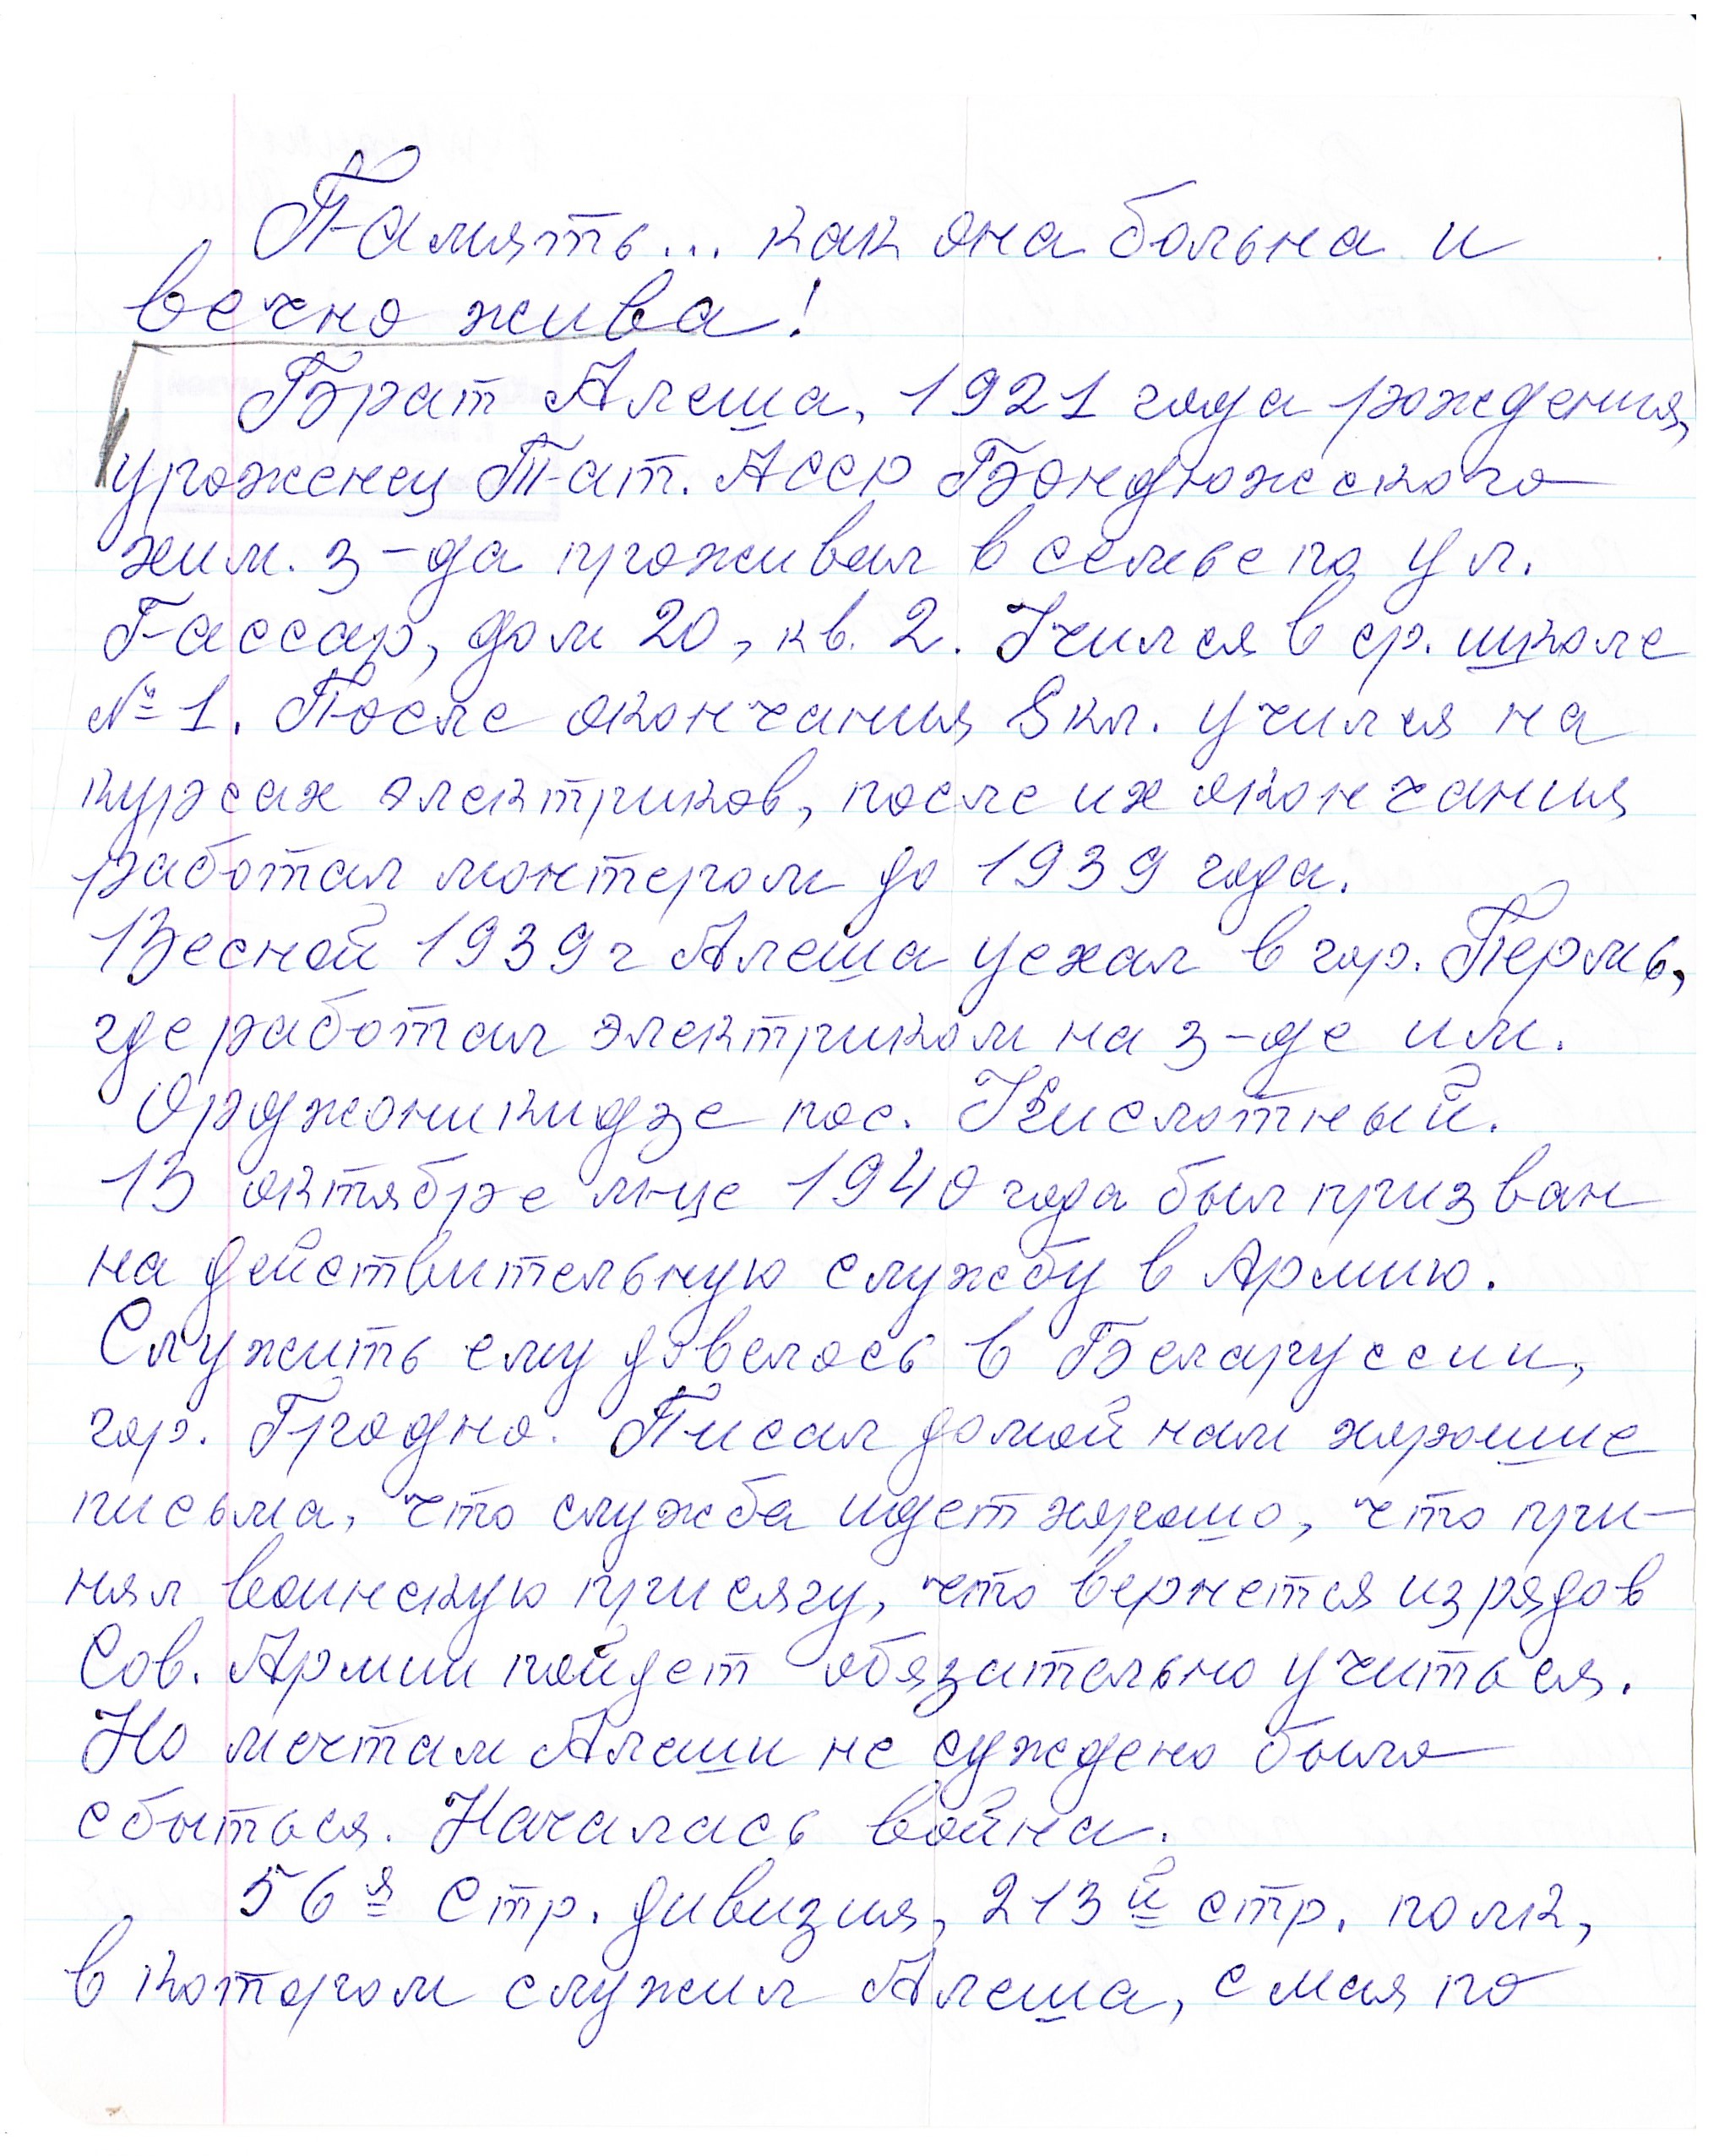 Память... как она больна и
вечно жива!
Брат Алеша, 1921 года рождения,
уроженец Тат. АССР Бондюжского
хим. з-да проживал в семье по ул.
Гассар, дом 20, кв. 2. Учился в ср. школе
№ 1. После окончания 8 кл. учился на
курсах электриков, после их окончания
работал монтером до 1939 года.
Весной 1939 г Алеша уехал в гор. Пермь,
где работал электриком на з-де им.
Орджоникидзе пос. Кислотный.
В октябре м-це 1940 года был призван
на действительную службу в Армию.
Служить ему довелось в Беларуссии,
гор. Гродно. Писал домой нам хорошие
письма, что служба идет хорошо, что при-
нял воинскую присягу, что вернется из рядов
Сов. Армии пойдет обязательно учиться.
Но мечтам Алеши не суждено было
сбыться. Началась война.
56я Стр. дивизия, 213й стр. полк,
в котором служил Алеша, с мая по